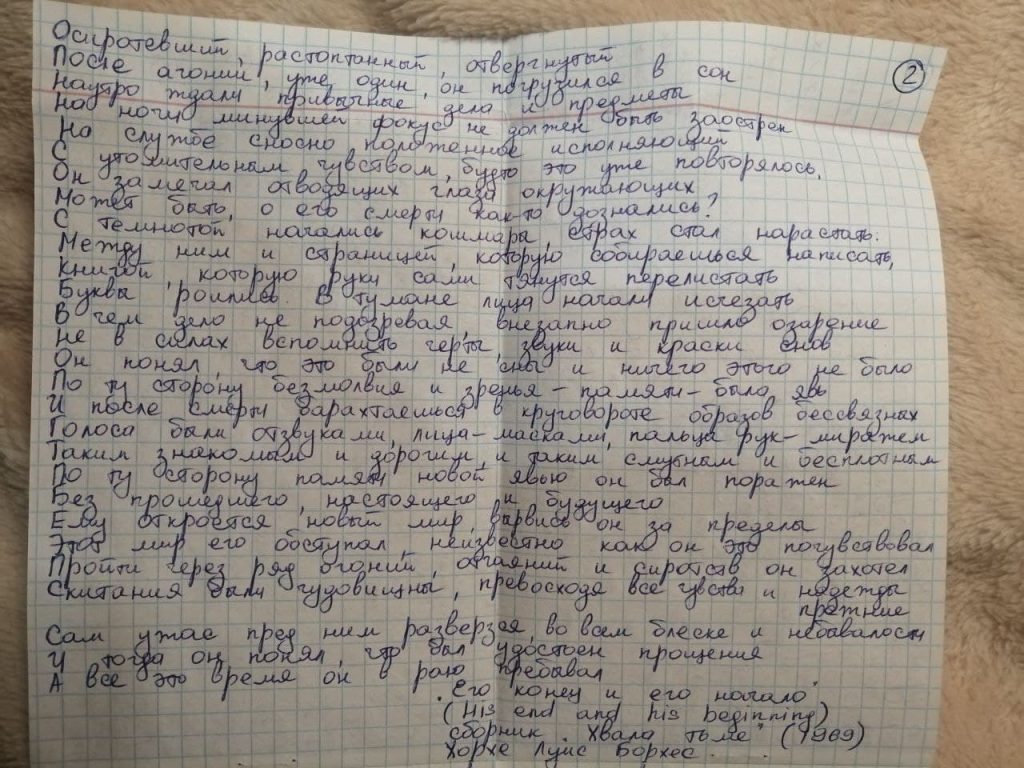 Осиротевший, растоптанный, отвергнутый
②
После агонии, уже один, он погрузился в сон
Наутро ждали привычные дела и предметы
На ночи минувшей фокус не должен быть заострен
На службе сносно положенное исполняющий
С утомительным чувством, будто это уже повторялось.
Он замечал отводящих глаза окружающих
Может быть, о его смерти как-то дознались?
С темнотой начались кошмары, страх стал нарастать.
Между ним и страницей, которую собираешься написать,
Книгой, которую руки сами тянутся перелистать
Буквы роились. В тумане лица начали исчезать
В чем дело не подозревая, внезапно пришло озарение
Не в силах вспомнить черты, звуки и краски снов
Он понял, что это были не сны и ничего этого не было
По ту сторону безмолвия и зренья - памяти - была явь
И после смерти барахтаешься в круговороте образов бессвязных
Голоса были отзвуками, лица - масками, пальцы рук - миражем
Таким знакомым и дорогим и таким смутным и бесплотным
По ту сторону памяти новой явью он был поражен
Без прошедшего, настоящего и будущего
Ему откроется новый мир, вырвись он за пределы
Этот мир его обступал, неизвестно как он это почувствовал
Пройти через ряд агоний, отчаяний и сиротств он захотел
Скитания были чудовищны, превосходя все чувства и надежды
прежние
Сам ужас пред ним разверзся, во всем блеске и небывалости
И тогда он понял, что был удостоен прощения
А все это время он в раю пребывал
"Его конец и его начало"
(His end and his beginning)
сборник "Хвала тьме" (1969)
Хорхе Луис Борхес.